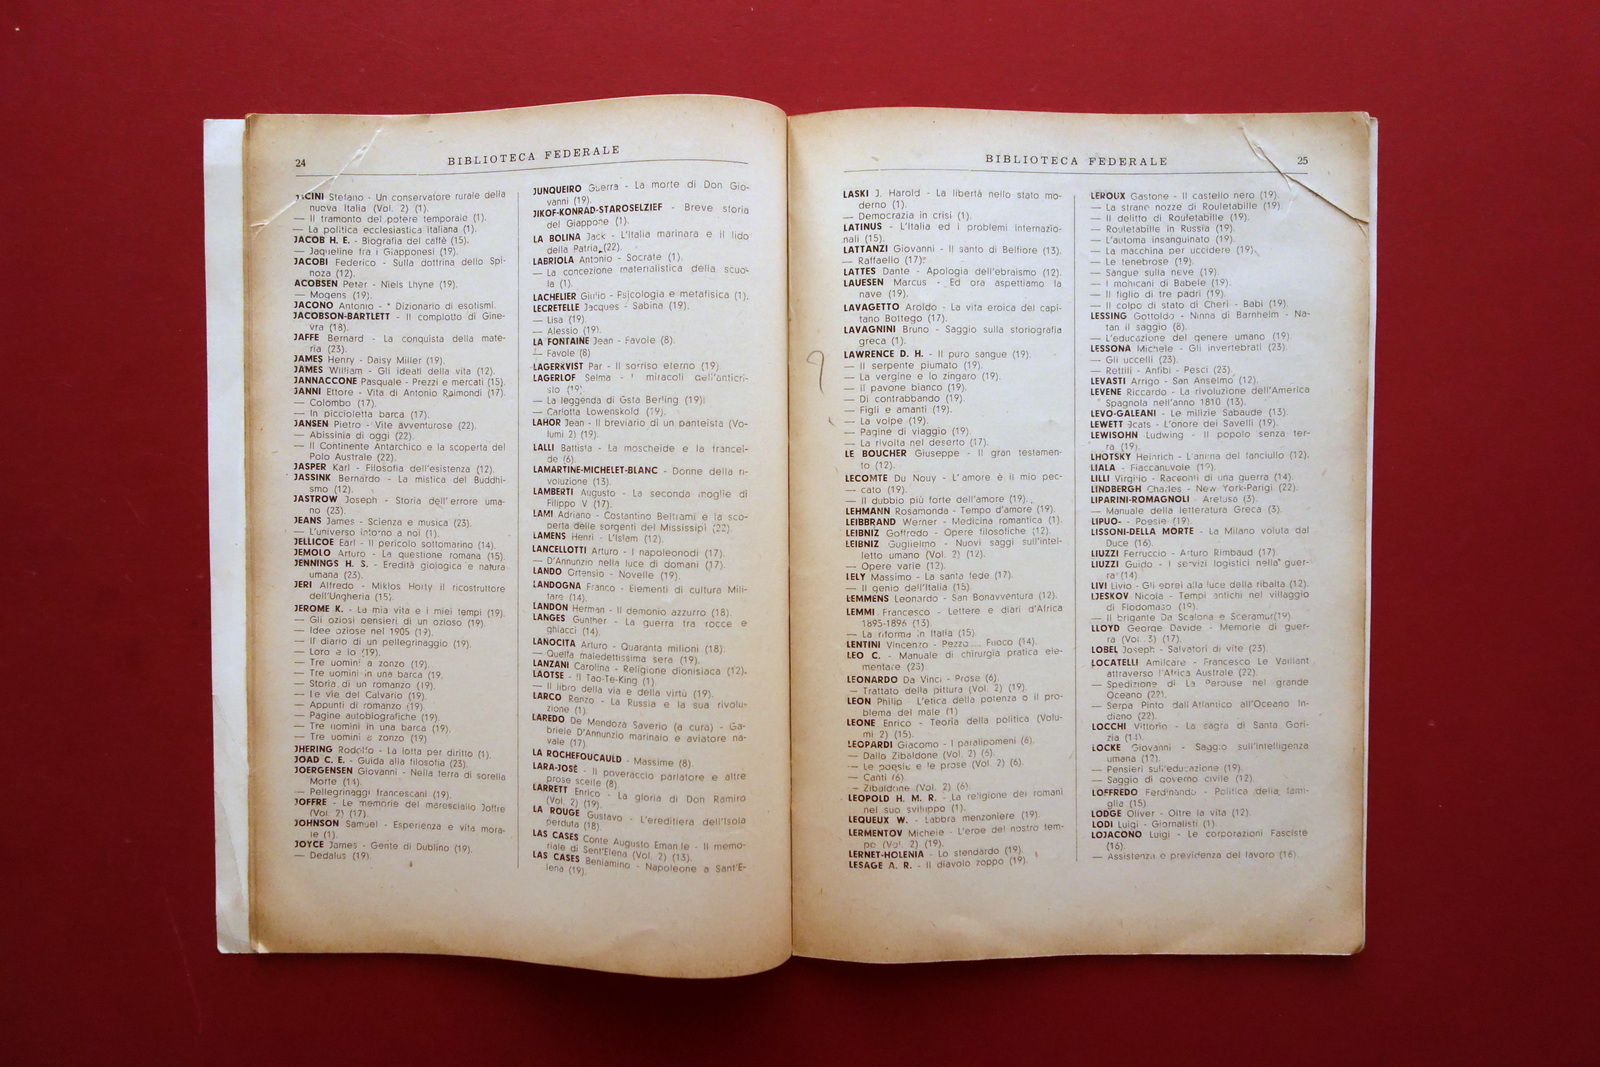 24
BIBLIOTECA FEDERALE
JACINI Stefano - Un conservatore rurale della
nuova Italia (Vol. 2) (1).
— Il tramonto del potere temporale (1).
— La politica ecclesiastica italiana (1).
JACOB H. E. - Biografia del caffè (15).
— Jaqueline fra i Giapponesi (19).
JACOBI Federico - Sulla dottrina dello Spi-
noza (12).
ACOBSEN Peter - Niels Lhyne (19).
— Mogens (19).
JACONO Antonio - * Dizionario di esotismi.
JACOBSON-BARTLETT - Il complotto di Gine-
vra (18).
JAFFE Bernard - La conquista della mate-
ria (23).
JAMES Henry - Daisy Miller (19).
JAMES William - Gli ideali della vita (12).
JANNACCONE Pasquale - Prezzi e mercati (15).
JANNI Ettore - Vita di Antonio Raimondi (17).
— Colombo (17).
— In piccioletta barca (17).
JANSEN Pietro - Vite avventurose (22).
— Abissinia di oggi (22).
— Il Continente Antarchico e la scoperta del
Polo Australe (22).
JASPER Karl - Filosofia dell'esistenza (12).
JASSINK Bernardo - La mistica del Buddhi-
smo (12).
JASTROW Joseph - Storia dell'errore uma-
no (23).
JEANS James - Scienza e musica (23).
— L'universo intorno a noi (1).
JELLICOE Earl - Il pericolo sottomarino (14).
JEMOLO Arturo - La questione romana (15).
JENNINGS H. S. - Eredità giologica e natura
umana (23).
JERI Alfredo - Miklos Horty il ricostruttore
dell'Ungheria (15).
JEROME K. - La mia vita e i miei tempi (19).
— Gli oziosi pensieri di un ozioso (19).
— Idee oziose nel 1905 (19).
— Il diario di un pellegrinaggio (19).
— Loro e io (19).
— Tre uomini a zonzo (19).
— Tre uomini in una barca (19.
— Storia di un romanzo (19).
— Le vie del Calvario (19).
— Appunti di romanzo (19).
— Pagine autobiografiche (19).
— Tre uomini in una barca (19).
— Tre uomini a zonzo (19)
JHERING Rodolfo - La lotta per diritto (1).
JOAD C. E. - Guida alla filosofia (23).
JOERGENSEN Giovanni - Nella terra di sorella
Morte (19).
— Pellegrinaggi francescani (19).
JOFFRE - Le memorie del maresciallo Joffre
(Vol. 2) (17).
JOHNSON Samuel - Esperienza e vita mora-
le (1).
JOYCE James - Gente di Dublino (19).
— Dedalus (19).
JUNQUEIRO Guerra - La morte di Don Gio-
vanni (19).
JIKOF-KONRAD-STAROSELZIEF - Breve storia
del Giappone (1).
LA BOLINA Jack - L'Italia marinara e il lido
della Patria (22).
LABRIOLA Antonio - Socrate (1).
— La concezione materialistica della scuo-
la (1).
LACHELIER Giulio - Psicologia e metafisica (1).
LECRETELLE Jacques - Sabina (19).
— Lisa (19).
— Alessio (19).
LA FONTAINE Jean - Favole (8).
— Favole (8)
LAGERKVIST Par - Il sorriso eterno (19)
LAGERLOF Selma - I miracoli dell'anticri-
sto (19)
— La leggenda di Gsta Berling (19)
— Carlotta Lowenskold (19).
LAHOR Jean - Il breviario di un panteista (Vo-
lumi 2) (19).
LALLI Battista - La moscheide e la francei-
de (6).
LAMARTINE-MICHELET-BLANC - Donne della ri-
voluzione (13).
LAMBERTI Augusto - La seconda moglie di
Filippo V (17).
LAMI Adriano - Costantino Beltrami e la sco-
perta delle sorgenti del Mississipi (22).
LAMENS Henri - L'Islam (12).
LANCELLOTTI Arturo - I napoleonodi (17).
— D'Annunzio nella luce di domani (17).
LANDO Ortensio - Novelle (19).
LANDOGNA Franco - Elementi di cultura Mili-
tare (14).
LANDON Herman - Il demonio azzurro (18).
LANGES Gunther - La guerra tra rocce e
ghiacci (14).
LANOCITA Arturo - Quaranta milioni (18).
— Quella maledettissima sera (19).
LANZANI Carolina - Religione dionisiaca (12).
LAOTSE - Il Tao-Te-King (1).
— Il libro della via e della virtù (19).
LARCO Renzo - La Russia e la sua rivolu-
zione (1).
LAREDO De Mendoza Saverio (a cura) - Ga-
briele D'Annunzio marinaio e aviatore na-
vale (17).
LA ROCHEFOUCAULD - Massime (8).
LARA-JOSÈ - Il poveraccio parlatore e altre
prose scelte (8).
LARRETT Enrico - La gloria di Don Ramiro
(Vol. 2) (19).
LA ROUGE Gustavo - L'ereditiera dell'Isola
perduta (18).
LAS CASES Conte Augusto Emanile - Il memo-
riale di Sent'Elena (Vol. 2) (13).
LAS CASES Beniamino - Napoleone a Sant'E-
lena (19).
BIBLIOTECA FEDERALE
25
LASKI J. Harold - La libertà nello stato mo-
derno (1).
— Democrazia in crisi (1).
LATINUS - L'Italia ed i problemi internazio-
nali (15).
LATTANZI Giovanni - Il santo di Belfiore (13).
— Raffaello (17).
LATTES Dante - Apologia dell'ebraismo (12).
LAUESEN Marcus - Ed ora aspettiamo la
nave (19).
LAVAGETTO Aroldo - La vita eroica del capi-
tano Bottego (17).
LAVAGNINI Bruno - Saggio sulla storiografia
greca (1).
LAWRENCE D. H. - Il puro sangue (19).
— Il serpente piumato (19).
— La vergine e lo zingaro (19).
— Il pavone bianco (19).
— Di contrabbando (19).
— Figli e amanti (19).
— La volpe (19).
— Pagine di viaggio (19).
— La rivolta nel deserto (17).
LE BOUCHER Giuseppe - Il gran testamen-
to (12).
LECOMTE Du Nouy - L'amore è il mio pec-
— cato (19).
— Il dubbio più forte dell'amore (19).
LEHMANN Rosamonda - Tempo d'amore (19).
LEIBBRAND Werner - Medicina romantica (1).
LEIBNIZ Goffrodo - Opere filosofiche (12).
LEIBNIZ Guglielmo - Nuovi saggi sull'intel-
letto umano (Vol. 2) (12).
— Opere varie (12).
LELY Massimo - La santa fede (17).
— Il genio dell'Italia (15).
LEMMENS Leonardo - San Bonavventura (12).
LEMMI Francesco - Lettere e diari d'Africa
1895-1896 (13).
— La riforma in Italia (15).
LENTINI Vincenzo - Pezzo... Fuoco (14).
LEO C. - Manuale di chirurgia pratica ele-
mentare (23)
LEONARDO Da Vinci - Prose (6).
— Trattato della pittura (Vol. 2) (19).
LEON Philip L'etica della potenza o il pro-
blema del male (1)
LEONE Enrico - Teoria della politica (Volu-
mi 2) (15).
LEOPARDI Giacomo - I paralipomeni (6).
— Dallo Zibaldone (Vol. 2) (6).
— Le poesie e le prose (Vol. 2) (6).
— Canti (6).
— Zibaldone (Vol. 2) (6).
LEOPOLD H. M. R. - La religione dei romani
nel suo sviluppo (1).
LEQUEUX W. - Labbra menzoniere (19).
LERMENTOV Michele - L'eroe del nostro tem-
po (Vol. 2) (19).
LERNET-HOLENIA - Lo stendardo (19).
LESAGE A. R. - Il diavolo zoppo (19).
LEROUX Gastone - Il castello nero (19).
— La strane nozze di Rouletabille (19).
— Il delitto di Rouletabille (19).
— Rouletabille in Russia (19).
— L'automa insanguinato (19).
— La macchina per uccidere (19).
— Le tenebrose (19).
— Sangue sulla neve (19).
— I mohicani di Babele (19).
— Il figlio di tre padri (19).
— Il colpo di stato di Cheri - Babi (19).
LESSING Gottoldo - Ninna di Barnhelm - Na-
tan il saggio (8).
— L'educazione del genere umano (19).
LESSONA Michele - Gli invertebrati (23).
— Gli uccelli (23).
— Rettili - Anfibi - Pesci (23).
LEVASTI Arrigo - San Anselmo (12).
LEVENE Riccardo - La rivoluzione dell'America
Spagnola nell'anno 1810 (13).
LEVO-GALEANI - Le milizie Sabaude (13).
LEWETT Jcats - L'onore dei Savelli (19).
LEWISOHN Ludwing - Il popolo senza ter-
ra (19).
LHOTSKY Heinrich - L'anima del fanciullo (12).
LIALA - Fiaccanuvole (19).
LILLI Virgilio - Racconti di una guerra (14).
LINDBERGH Charles - New York-Parigi (22).
LIPARINI-ROMAGNOLI - Aretusa (3).
— Manuale della letteratura Greca (3).
LIPUO- - Poesie (19).
LISSONI-DELLA MORTE - La Milano voluta dal
Duce (16).
LIUZZI Ferruccio - Arturo Rimbaud (17).
LIUZZI Guido - I servizi logistici nella guer-
ra (14)
LIVI Livio - Gli ebrei alla luce della ribalta (12).
LJESKOV Nicola - Tempi antichi nel villaggio
di Flodomaso (19).
— Il brigante Da Scalona e Sceramur(19).
LLOYD George Davide - Memorie di guer-
ra (Vol. 3) (17).
LOBEL Joseph - Salvatori di vite (23).
LOCATELLI Amilcare - Francesco Le Vaillant
attraverso l'Africa Australe (22).
— Spedizione di La Perouse nel grande
Oceano (22).
— Serpa Pinto dall'Atlantico all'Oceano In-
diano (22).
LOCCHI Vittorio - La sagra di Santa Gori-
zia (14).
LOCKE Giovanni - Saggio sull'intelligenza
umana (12).
— Pensieri sull'educazione (19).
— Saggio di governo civile (12).
LOFFREDO Ferdinando - Politica della fami-
glia (15).
LODGE Oliver - Oltre la vita (12).
LODI Luigi - Giornalisti (1).
LOJACONO Luigi - Le corporazioni Fasciste
(16).
— Assistenza e previdenza del lavoro (16).